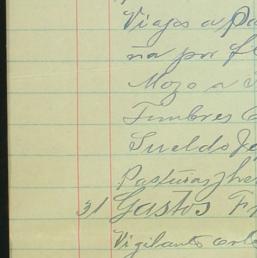 Viajes a Pa
ña por f
Mozo a
Timbres
Sueldo Je
Pasturas y her
31 Gastos F
Vigilante